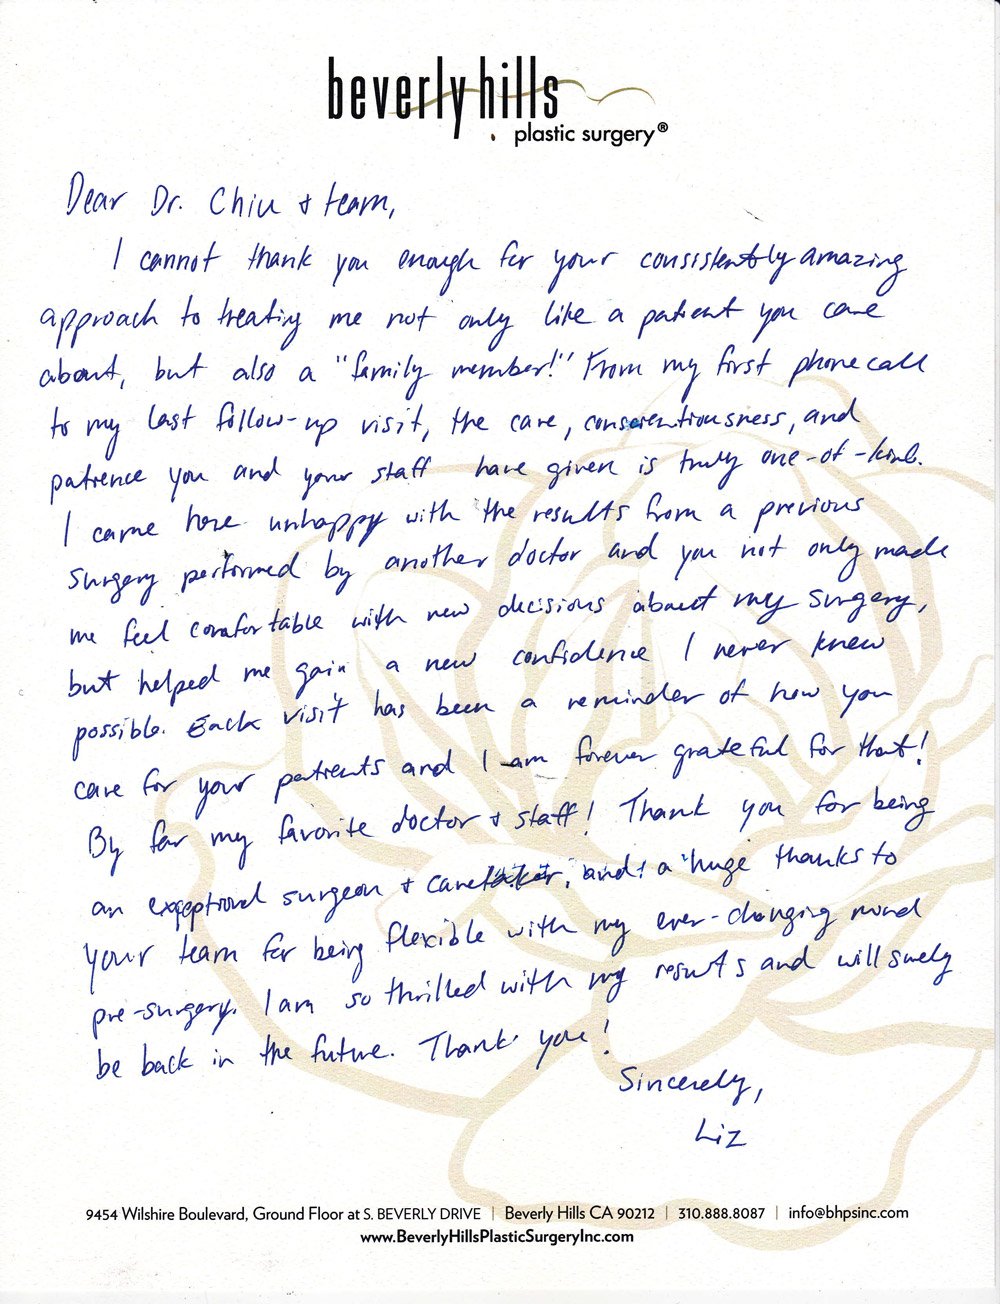 beverly hills
plastic surgery®
Dear Dr. Chiu + team,
I cannot thank you enough for your consistently amazing
approach to treating me not only like a patient you care
about, but also a "family member!" From my first phone call
to my last follow-up visit, the care, conscientiousness, and
patience you and your staff have given is truly one-of-kind.
I came here unhappy with the results from a previous
surgery performed by another doctor and you not only made
me feel comfortable with new decisions about my surgery,
but helped me gain a new confidence I never knew
possible. Each visit has been a reminder of how you
care for your patients and I am forever grateful for that!
By far my favorite doctor + staff! Thank you for being
an exceptional surgeon + caretaker, and a huge thanks to
your team for being flexible with my ever-changing mind
pre-surgery. I am so thrilled with my results and will surely
be back in the future. Thank you!
Sincerely,
Liz
9454 Wilshire Boulevard, Ground Floor at S. BEVERLY DRIVE | Beverly Hills CA 90212 | 310.888.8087 | info@bhpsinc.com
www.BeverlyHillsPlasticSurgeryInc.com